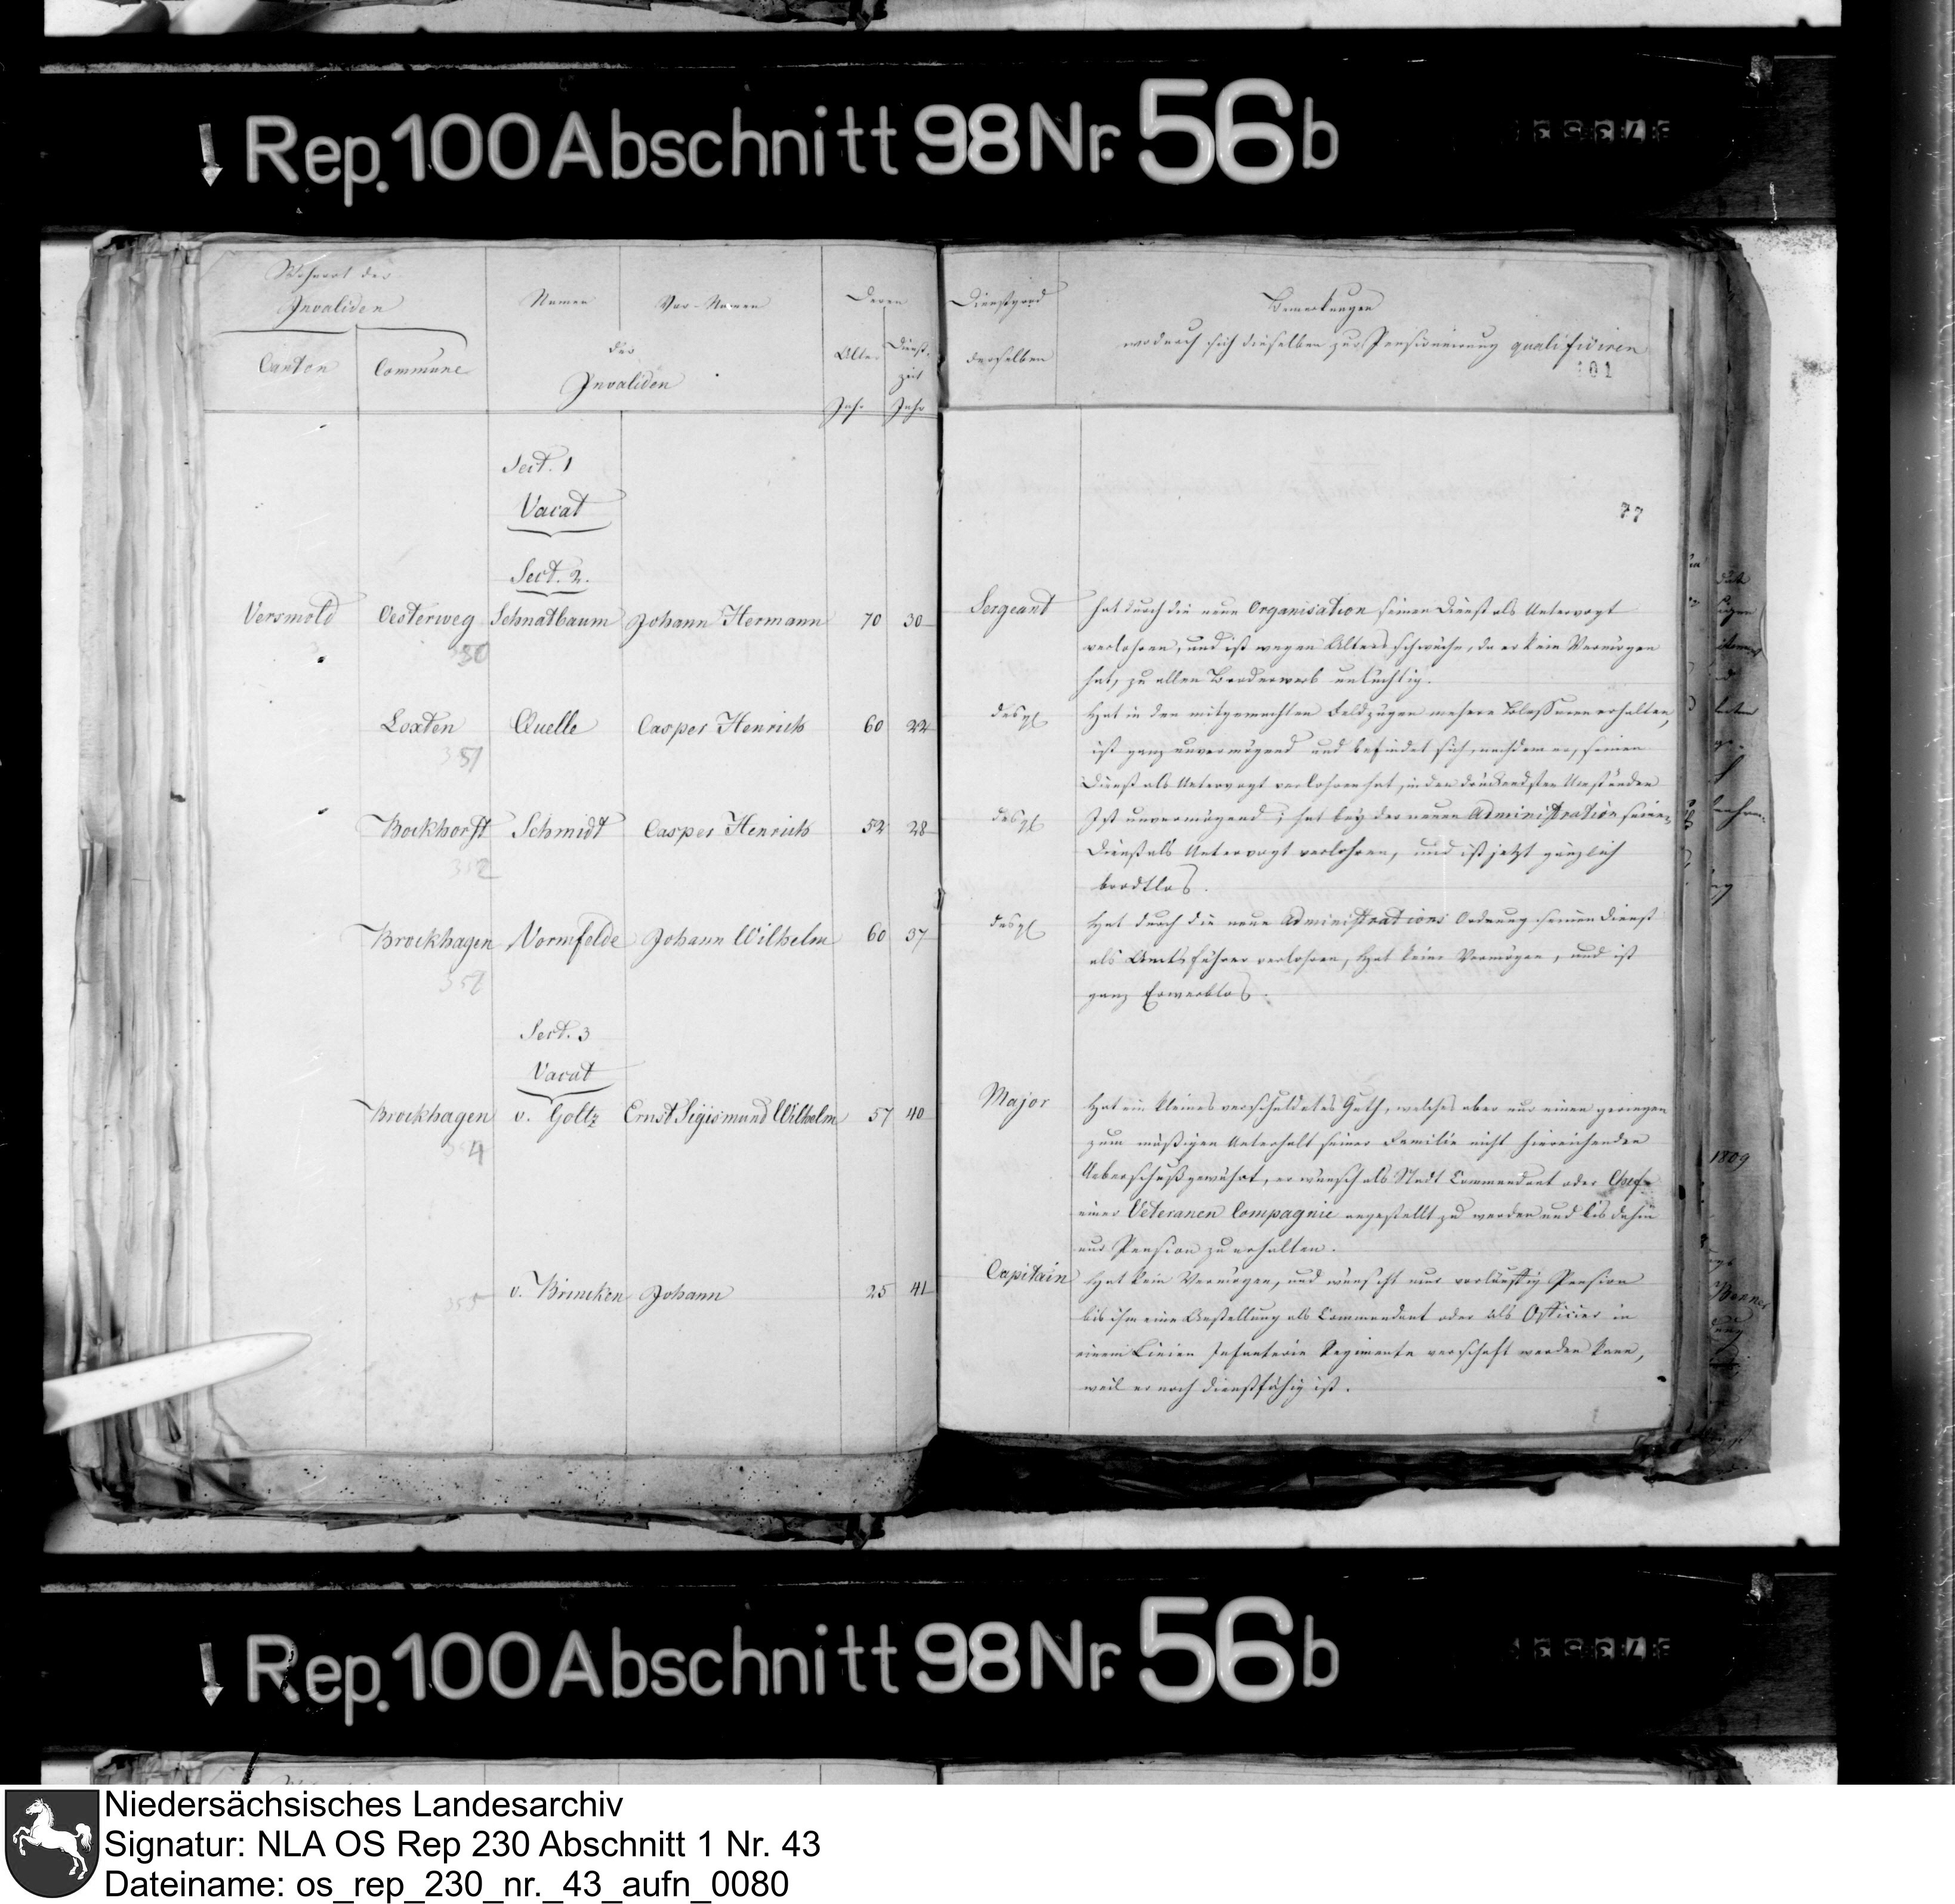 Rep. 100 Abschnitt 98 Nr. 56b
Wohnort der
Invaliden
Namen
Vor-Namen
Deren
Dienstgrad
Bemerkungen
Canton
Commune
der
Invaliden
Alter
Dienst-
zeit
Jahr
Jahr
derselben
wodurch sich dieselben zur Pensionirung qualificiren
101
Sect. 1
Vacat
77
Sect. 2.
Versmold Oesterweg Schnatbaum Johann Hermann 70 30 Sergeant
350
hat durch die neue Organisation seinen Dienst als Untervogt
verlohren, und ist wegen Altersschwäche, da er kein Vermögen
hat, zu allen Broderwerb untüchtig.
Loxten Quelle Casper Henrich 60 22 desgl
351
Hat in den mitgemachten Feldzügen mehrere Blessuren erhalten,
ist ganz unvermögend und befindet sich, nachdem er, seinen
Dienst als Untervogt verlohren hat, in den drückendsten Umständen
Bockhorst Schmidt Casper Henrich 52 28 desgl
352
Ist unvermögend; hat bey der neuen Administration seinen
Dienst als Untervogt verlohren, und ist jetzt gänzlich
brodtlos.
Brockhagen Normfelde Johann Wilhelm 60 37 desgl
Hat durch die neue Administrations Ordnung seinen Dienst
als Amtsführer verlohren, Hat keine Vermögen, und ist
ganz Erwerblos.
Sect. 3
Vacat
Brockhagen v. Goltz Ernst Sigismund Wilhelm 57 40 Major
354
Hat ein kleines verschuldetes Guth, welches aber nur einen geringen
zum mäßigen Unterhalt seiner Familie nicht hinreichenden
Ueberschuß gewährt, er wünscht als Stadt Commandant oder Chef
einer Veteranen Compagnie angestellt zu werden und bis dahin
nur Pension zu erhalten.
v. Brincken Johann 25 41 Capitain
355
Hat kein Vermögen, und wünscht nur vorläuffig Pension
bis ihm eine Anstellung als Commandant oder als Officier in
einem Linien Infanterie Regimente verschaft werden kann,
weil er noch dienstfähig ist.
1809
Rep. 100 Abschnitt 98 Nr. 56b
Niedersächsisches Landesarchiv
Signatur: NLA OS Rep 230 Abschnitt 1 Nr. 43
Dateiname: os_rep_230_nr._43_aufn_0080